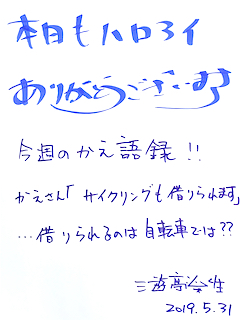 本日もハロマイ
ありがとうございます
今週のかえ語録!!
かえさん「サイクリングも借りられます」
…借りられるのは自転車では??
2019.5.31